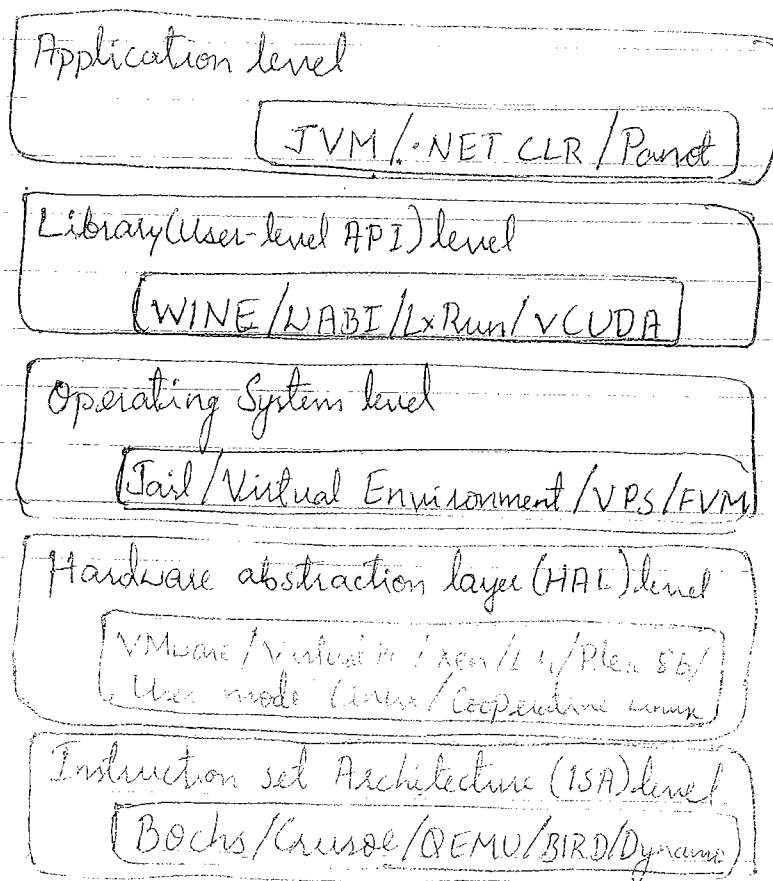 Application level
JVM / .NET CLR / Parrot
Library (User-level API) level
WINE / WABI / LxRun / VCUDA
Operating System level
Jail / Virtual Environment / VPS / FVM
Hardware abstraction layer (HAL) level
VMware / Virtual PC / Xen / L4 / Plex 86 /
User mode Linux / Cooperative Linux
Instruction set Architecture (ISA) level
Bochs / Crusoe / QEMU / BIRD / Dynamo